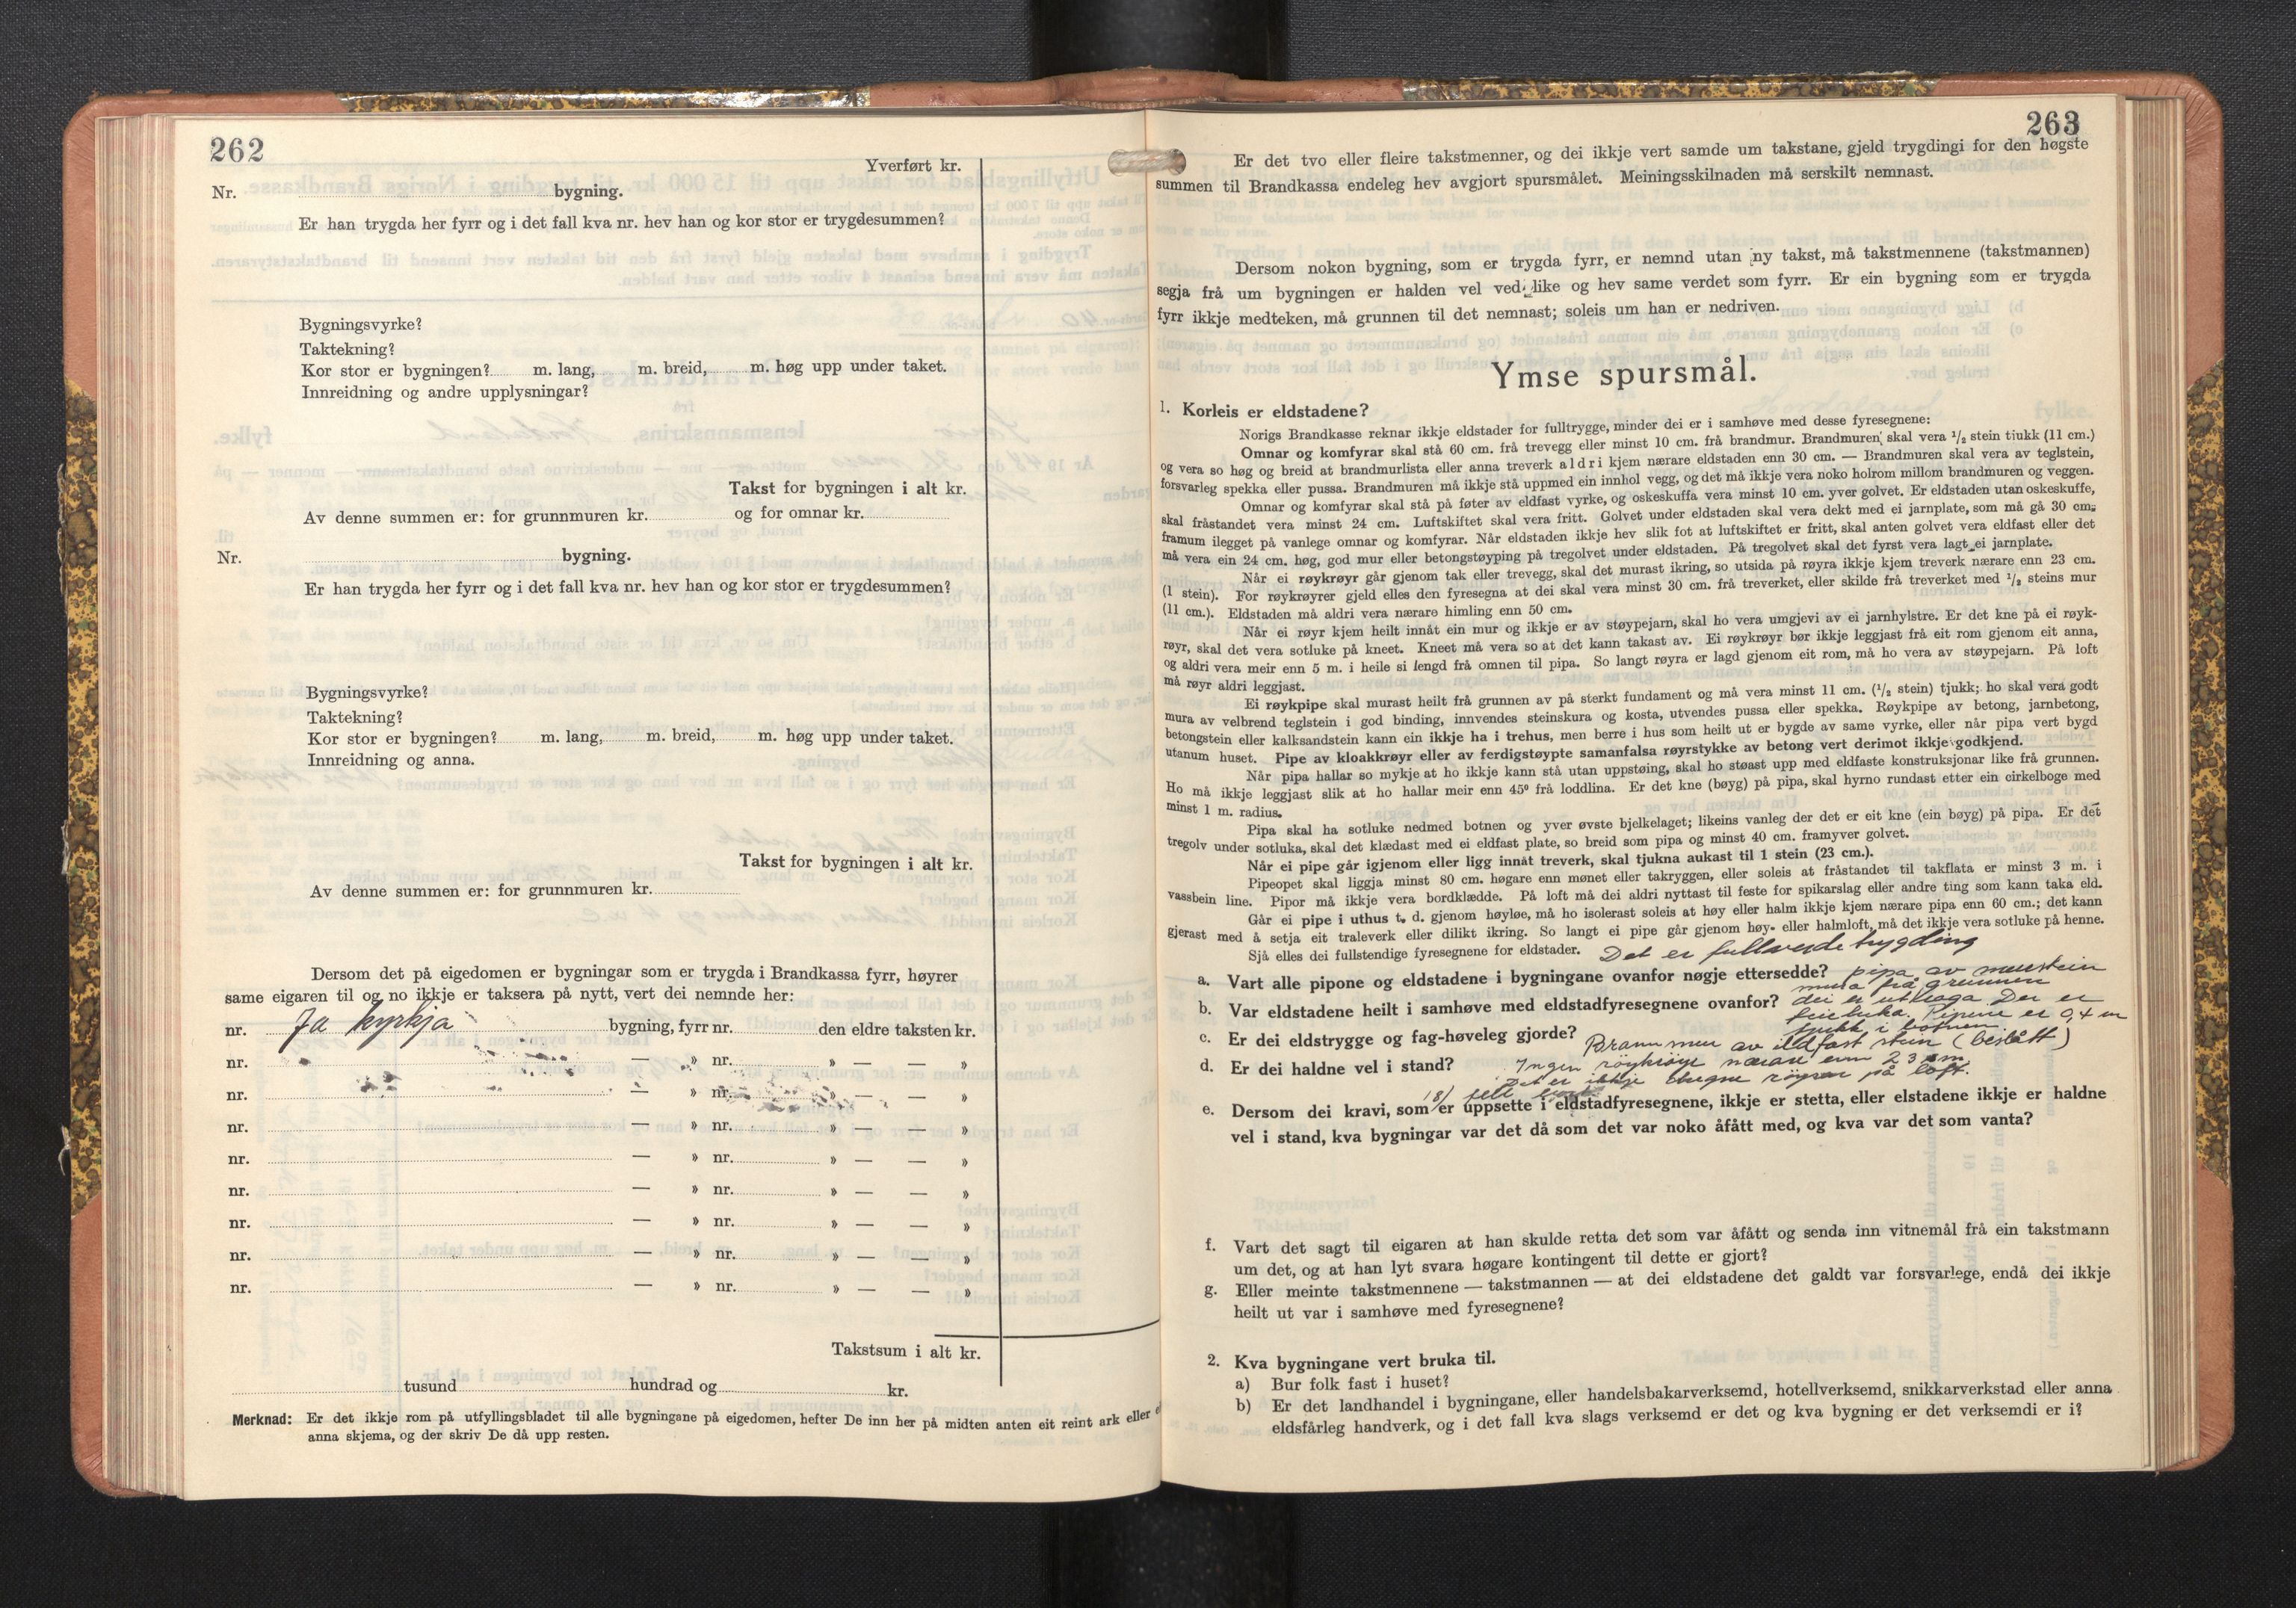 262
Yverført kr.
Nr. bygning.
Er han trygda her fyrr og i det fall kva nr. hev han og kor stor er trygdesummen?
Bygningsvyrke?
Taktekning?
Kor stor er bygningen? m. lang, m. breid, m. høg upp under taket.
Innreidning og andre upplysningar?
Takst for bygningen i alt kr.
Av denne summen er: for grunnmuren kr. og for omnar kr.
Nr. bygning.
Er han trygda her fyrr og i det fall kva nr. hev han og kor stor er trygdesummen?
Bygningsvyrke?
Taktekning?
Kor stor er bygningen? m. lang, m. breid, m. høg upp under taket.
Innreidning og anna.
Takst for bygningen i alt kr.
Av denne summen er: for grunnmuren kr.
Dersom det på eigedomen er bygningar som er trygda i Brandkassa fyrr, høyrer
same eigaren til og no ikkje er taksera på nytt, vert dei nemnde her:
nr. Ja kyrkja bygning, fyrr nr. den eldre taksten kr.
nr. — » nr. » — — »
nr. — » nr. » — — »
nr. — » nr. » — — »
nr. — » nr. » — — »
nr. — » nr. » — — »
nr. — » nr. » — — »
nr. — » nr. » — — »
nr. — » nr. » — — »
Takstsum i alt kr.
tusund hundrad og kr.
Merknad: Er det ikkje rom på utfyllingsbladet til alle bygningane på eigedomen, hefter De inn her på midten anten eit reint ark eller e
anna skjema, og der skriv De då upp resten.
263
Er det tvo eller fleire takstmenner, og dei ikkje vert samde um takstane, gjeld trygdingi for den høgste
summen til Brandkassa endeleg hev avgjort spursmålet. Meiningsskilnaden må serskilt nemnast.
Dersom nokon bygning, som er trygda fyrr, er nemnd utan ny takst, må takstmennene (takstmannen)
segja frå um bygningen er halden vel ved like og hev same verdet som fyrr. Er ein bygning som er trygda
fyrr ikkje medteken, må grunnen til det nemnast; soleis um han er nedriven.
Ymse spursmål.
1. Korleis er eldstadene?
Norigs Brandkasse reknar ikkje eldstader for fulltrygge, minder dei er i samhøve med desse fyresegnene:
Omnar og komfyrar skal stå 60 cm. frå trevegg eller minst 10 cm. frå brandmur. Brandmuren skal vera 1/2 stein tjukk (11 cm.)
og vera so høg og breid at brandmurlista eller anna treverk aldri kjem nærare eldstaden enn 30 cm. — Brandmuren skal vera av teglstein,
forsvarleg spekka eller pussa. Brandmuren må ikkje stå uppmed ein innhol vegg, og det må ikkje vera noko holrom millom brandmuren og veggen.
Omnar og komfyrar skal stå på føter av eldfast vyrke, og oskeskuffa vera minst 10 cm. yver golvet. Er eldstaden utan oskeskuffe,
skal fråstandet vera minst 24 cm. Luftskiftet skal vera fritt. Golvet under eldstaden skal vera dekt med ei jarnplate, som må gå 30 cm.
framum ilegget på vanlege omnar og komfyrar. Når eldstaden ikkje hev slik fot at luftskiftet er fritt, skal anten golvet vera eldfast eller det
må vera ein 24 cm. høg, god mur eller betongstøyping på tregolvet under eldstaden. På tregolvet skal det fyrst vera lagt ei jarnplate.
Når ei røykrøyr går gjenom tak eller trevegg, skal det murast ikring, so utsida på røyra ikkje kjem treverk nærare enn 23 cm.
(1 stein). For røykrøyrer gjeld elles den fyresegna at dei skal vera minst 30 cm. frå treverket, eller skilde frå treverket med 1/2 steins mur
(11 cm.). Eldstaden må aldri vera nærare himling enn 50 cm.
Når ei røyr kjem heilt innåt ein mur og ikkje er av støypejarn, skal ho vera umgjevi av ei jarnhylstre. Er det kne på ei røyk-
røyr, skal det vera sotluke på kneet. Kneet må vera so at det kann takast av. Ei røykrøyr bør ikkje leggjast frå eit rom gjenom eit anna,
og aldri vera meir enn 5 m. i heile si lengd frå omnen til pipa. So langt røyra er lagd gjenom eit rom, må ho vera av støypejarn. På loft
må røyr aldri leggjast.
Ei røykpipe skal murast heilt frå grunnen av på sterkt fundament og må vera minst 11 cm. (1/2 stein) tjukk; ho skal vera godt
mura av velbrend teglstein i god binding, innvendes steinskura og kosta, utvendes pussa eller spekka. Røykpipe av betong, jarnbetong,
betongstein eller kalksandstein kann ein ikkje ha i trehus, men berre i hus som heilt ut er bygde av same vyrke, eller når pipa vert bygd
utanum huset. Pipe av kloakkrøyr eller av ferdigstøypte samanfalsa røyrstykke av betong vert derimot ikkje godkjend.
Når pipa hallar so mykje at ho ikkje kann stå utan uppstøing, skal ho støast upp med eldfaste konstruksjonar like frå grunnen.
Ho må ikkje leggjast slik at ho hallar meir enn 45° frå loddlina. Er det kne (bøyg) på pipa, skal hyrno rundast etter ein cirkelboge med
minst 1 m. radius.
Pipa skal ha sotluke nedmed botnen og yver øvste bjelkelaget; likeins vanleg der det er eit kne (ein bøyg) på pipa. Er det
tregolv under sotluka, skal det klædast med ei eldfast plate, so breid som pipa og minst 40 cm. framyver golvet.
Når ei pipe går igjenom eller ligg innåt treverk, skal tjukna aukast til 1 stein (23 cm.).
Pipeopet skal liggja minst 80 cm. høgare enn mønet eller takryggen, eller soleis at fråstandet til takflata er minst 3 m. i
vassbein line. Pipor må ikkje vera bordklædde. På loft må dei aldri nyttast til feste for spikarslag eller andre ting som kann taka eld.
Går ei pipe i uthus t. d. gjenom høyløe, må ho isolerast soleis at høy eller halm ikkje kjem nærare pipa enn 60 cm.; det kann
gjerast med å setja eit traleverk eller dilikt ikring. So langt ei pipe går gjenom høy- eller halmloft, må det ikkje vera sotluke på henne.
Sjå elles dei fullstendige fyresegnene for eldstader. Det er fullverde trygding
a. Vart alle pipone og eldstadene i bygningane ovanfor nøgje ettersedde? pipa av murstein
mura frå grunnen
b. Var eldstadene heilt i samhøve med eldstadfyresegnene ovanfor? dei er Der er
feieluka. Pipune er 0,4 m
tjukk i botnen.
c. Er dei eldstrygge og fag-høveleg gjorde? Brannmur av ildfast stein (beslått)
d. Er dei haldne vel i stand? Ingen røykrøyr nærare enn 23 cm
Det er ikkje røyrer på loft.
e. Dersom dei kravi, som er uppsette i eldstadfyresegnene, ikkje er stetta, eller elstadene ikkje er haldne
vel i stand, kva bygningar var det då som det var noko åfått med, og kva var det som vanta?
f. Vart det sagt til eigaren at han skulde retta det som var åfått og senda inn vitnemål frå ein takstmann
um det, og at han lyt svara høgare kontingent til dette er gjort?
g. Eller meinte takstmennene — takstmannen — at dei eldstadene det galdt var forsvarlege, endå dei ikkje
heilt ut var i samhøve med fyresegnene?
2. Kva bygningane vert bruka til.
a) Bur folk fast i huset?
b) Er det landhandel i bygningane, eller handelsbakarverksemd, hotellverksemd, snikkarverkstad eller anna
eldsfårleg handverk, og i det fall kva slags verksemd er det og kva bygning er det verksemdi er i?